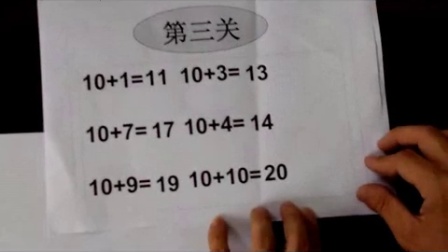 第三关
10+1=11 10+3=13
10+7=17 10+4=14
10+9=19 10+10=20